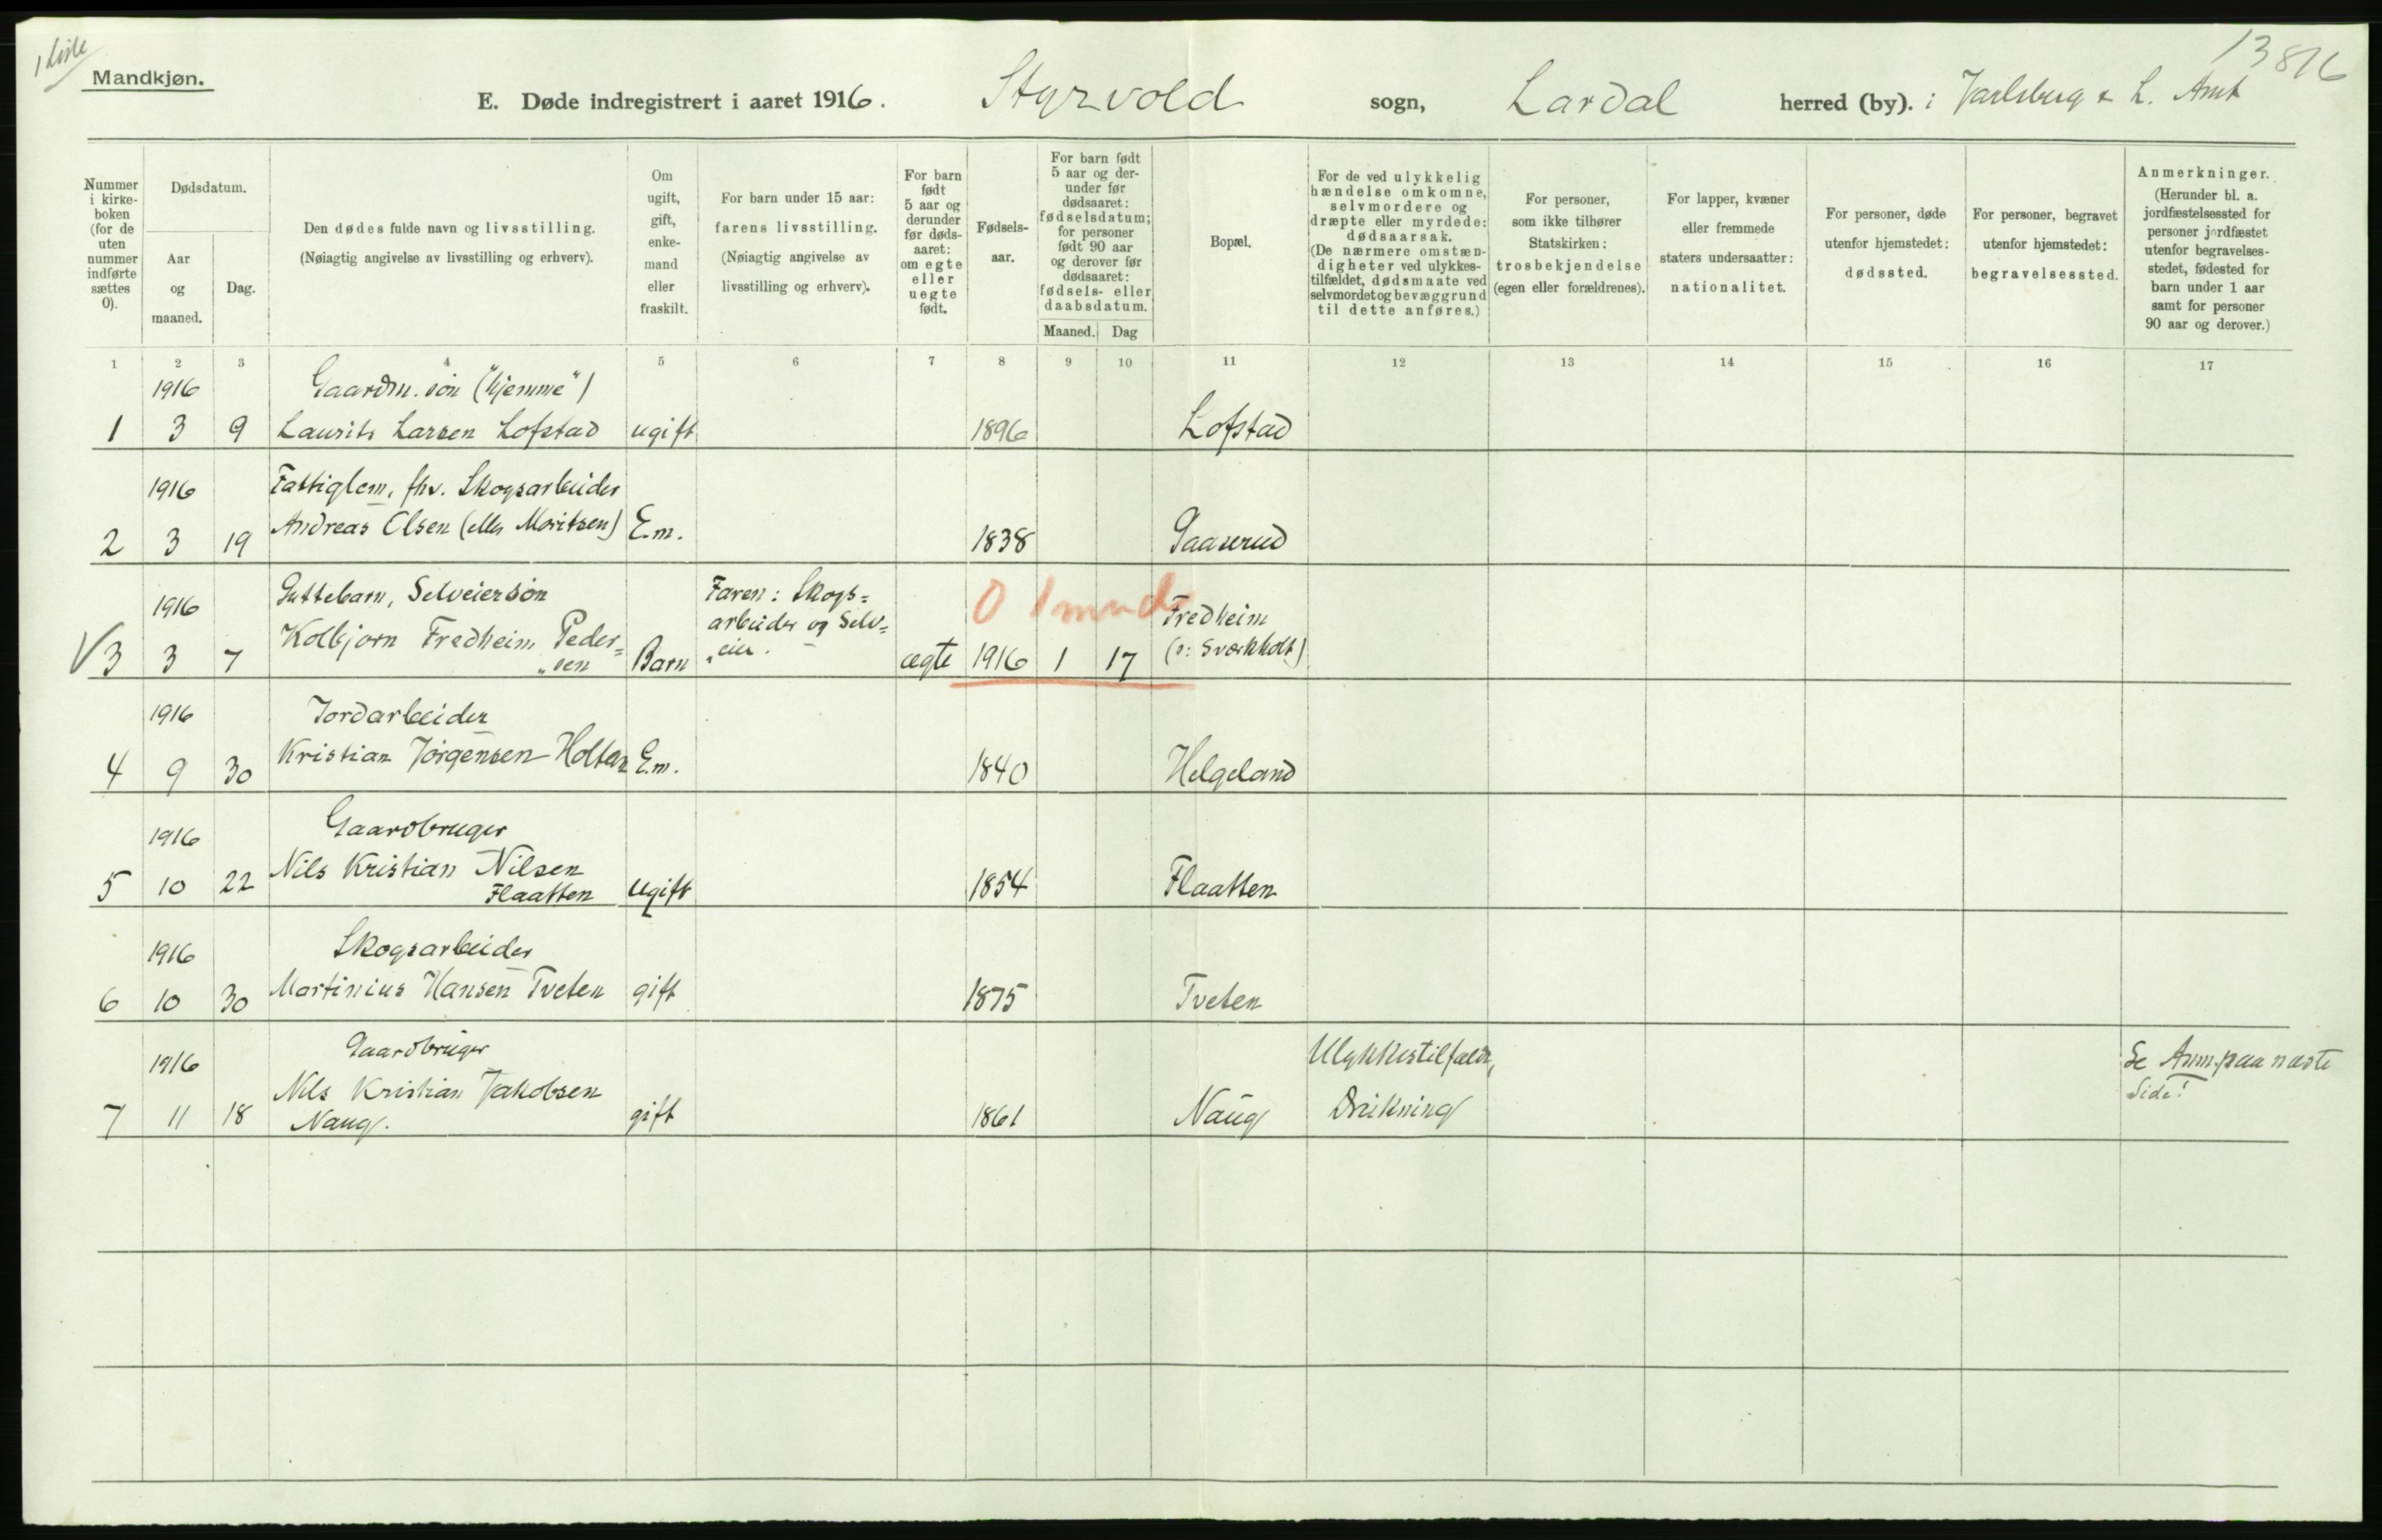 1 Liste
Mandkjøn.
13 816
E. Døde indregistrert i aaret 1916. Styrvold sogn, Lardal herred (by). i Jarlsberg & L. Amt
Nummer
i kirke-
boken
(for de
uten
nummer
indførte
sættes
0).
Dødsdatum.
Aar
og
maaned.
Dag.
Den dødes fulde navn og livsstilling.
(Nøiagtig angivelse av livsstilling og erhverv).
Om
ugift,
gift,
enke-
mand
eller
fraskilt.
For barn under 15 aar:
farens livsstilling.
(Nøiagtig angivelse av
livsstilling og erhverv).
For barn
født
5 aar og
derunder
før døds-
aaret:
om egte
eller
uegte
født.
Fødsels-
aar.
For barn født
5 aar og der-
under før
dødsaaret:
fødselsdatum;
for personer
født 90 aar
og derover før
dødsaaret:
fødsels- eller
daabsdatum.
Maaned. Dag
Bopæl.
For de ved ulykkelig
hændelse omkomne,
selvmordere og
dræpte eller myrdede:
dødsaarsak.
(De nærmere omstæn-
digheter ved ulykkes-
tilfældet, dødsmaate ved
selvmordet og bevæggrund
til dette anføres.)
For personer,
som ikke tilhører
Statskirken:
trosbekjendelse
(egen eller forældrenes).
For lapper, kvæner
eller fremmede
staters undersaatter:
nationalitet.
For personer, døde
utenfor hjemstedet:
dødssted.
For personer, begravet
utenfor hjemstedet:
begravelsessted.
Anmerkninger.
(Herunder bl. a.
jordfæstelsessted for
personer jordfæstet
utenfor begravelses-
stedet, fødested for
barn under 1 aar
samt for personer
90 aar og derover.)
1 2 3 4 5 6 7 8 9 10 11 12 13 14 15 16 17
1916 Gaardm. søn ("hjemme")
1 3 9 Laurits Larsen Lofstad ugift 1896 Lofstad
1916 Fattiglem, fhv. Skogsarbeider
2 3 19 Andreas Olsen (eller Moritsen) E.m. 1838 Gaaserud
1916 Guttebarn, Selveiersøn Faren: Skogs= 0 1 mnd Fredheim
Kolbjørn Fredheim Peder= arbeider og Selv=
V 3 3 7 "sen Barn "eier. ægte 1916 1 17 (ɔ: Sværkholt)
1916 Jordarbeider
4 9 30 Kristian Jørgensen Holtan E.m. 1840 Helgeland
1916 Gaardbruger
Nils Kristian Nilsen
5 10 22 Flaatten ugift 1854 Flaatten
1916 Skogsarbeider
6 10 30 Martinius Hansen Tveten gift 1875 Tveten
1916 Gaardbruger Ulykkestilfælde, Se Anm. paa næste
Nils Kristian Jakobsen Side!
7 11 18 Naug. gift 1861 Naug Drukning